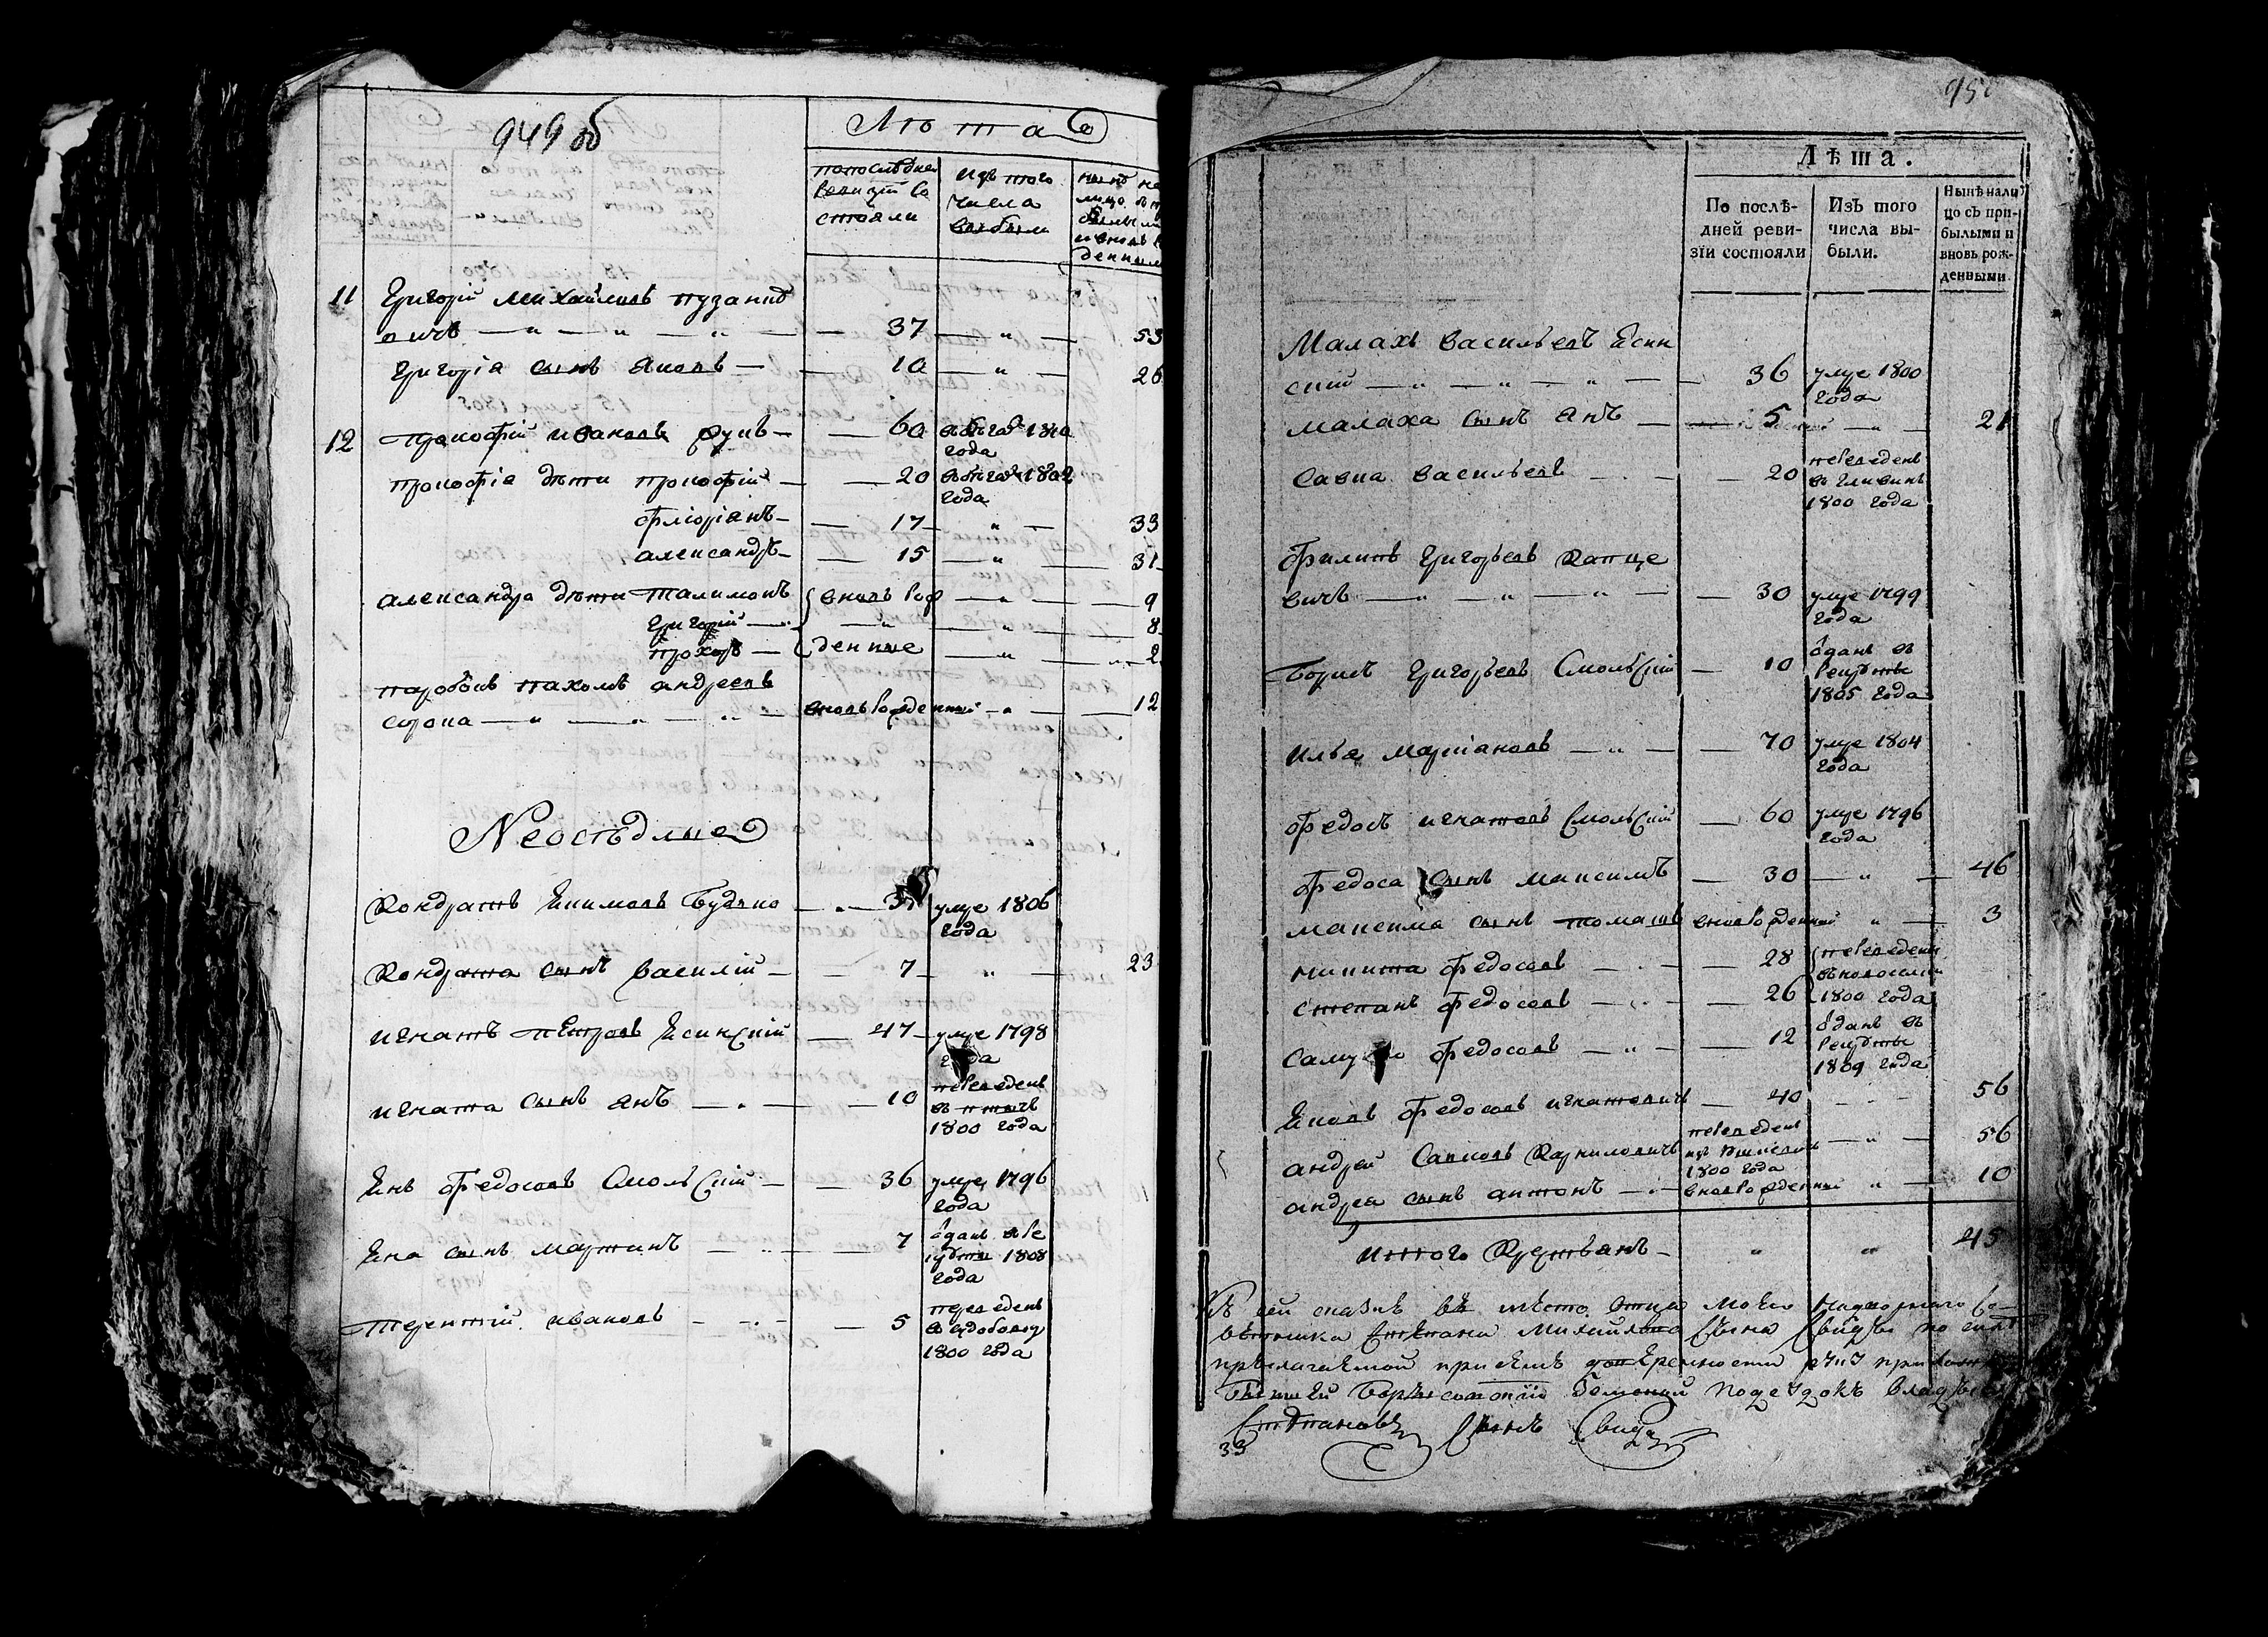 949 об
Лѣта
по послѣдней
ревизіи со
стояли
изъ того
числа
выбыли
нынѣ на
лицо
денными
11 Григорій Михайловъ Пузанке
вичъ — „ — „ — „ — 37 — „ — 53
Григорія сынъ Яковъ — 10 — „ — 26
12 Прокофій Ивановъ Рунъ — 60 въ бѣгах 1810
года
Прокофія дѣти Прокофій — 20 въ бѣгах 1802
года
Фліоріанъ — 17 — „ — 33
Александръ — 15 — „ — 31
Александра дѣти Талимонъ вновь рож — „ — 9
Григорій — „ — „ — 8
Прохоръ — денные — „ — 2
Паробокъ Пахомъ Андреевъ
Сорока — „ — „ — „ — вновь рожденный — „ — 12
Неосѣдлые
Кондратъ Екимовъ Будько — „ — умре 1806
года
Кондрата сынъ Василій — 7 — „ — 23
Игнатъ Петровъ Есинскій — 47 — умре 1798
года
Игната сынъ Янъ — „ — 10 переведенъ
въ Птичъ
1800 года
Янъ Федосовъ Смольскій — 36 умре 1796
года
Яна сынъ Мартинъ — „ — 7 вданъ в ре
круты 1808
года
Терентій Ивановъ — „ — 5 переведенъ
1800 года
95
Лѣта.
По послѣ-
дней реви-
зіи состояли
Изъ того
числа вы-
были.
Нынѣ нали
цо съ при-
былыми и
вновь рож-
денными.
Малахъ Васильевъ Есин
скій — „ — „ — „ — 36 умре 1800
года
Малаха сынъ Янъ — 5 — „ — 21
Савка Васильевъ — „ — 20 переведенъ
въ Гливинъ
1800 года
Филипъ Григорьевъ Капце
вичъ — „ — „ — „ — 30 умре 1799
года
Борисъ Григорьевъ Смольскій — 10 вданъ въ
рекруты
1805 года
Илья Марціановъ — „ — 70 умре 1804
года
Федосъ Игнатовъ Смольскій — 60 умре 1796
года
Федоса сынъ Максимъ — 30 — „ — 46
Максима сынъ Томашъ вновь рожденный „ — 3
Микита Федосовъ — „ — 28 переведены
Степанъ Федосовъ — „ — 26 1800 года
Федосовъ — „ — 12 вданъ въ
рекруты
1809 года
Яковъ Федосовъ Игнатовичъ — 40 — „ — 56
Андрей Савковъ Корниловичъ переведенъ
1800 года — „ — 56
Андрея сынъ Антонъ — „ — вновь рожденный „ — 10
Итого крестьянъ — „ „ 45
Къ сей сказкѣ въ мѣсто отца моего надворнаго со-
вѣтника Степана Михайлова сына Свиды по силѣ
прилагаемой при семъ довѣренности
Степановъ сынъ Свида
33